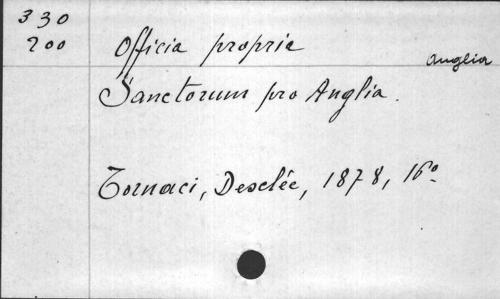 330
200
Officia propria
Anglia
Sanctorum pro Anglia.
Tornaci, Desclée, 1878, 16°